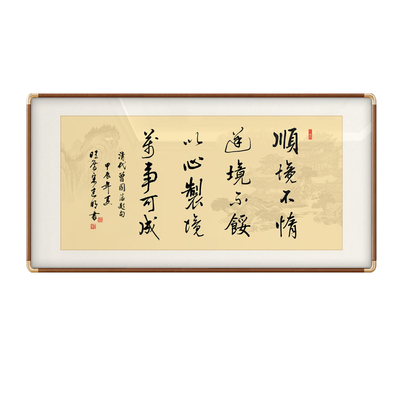 順境不惰
逆境不餒
以心製境
萬事可成
清代曾國藩題句
甲辰年夏